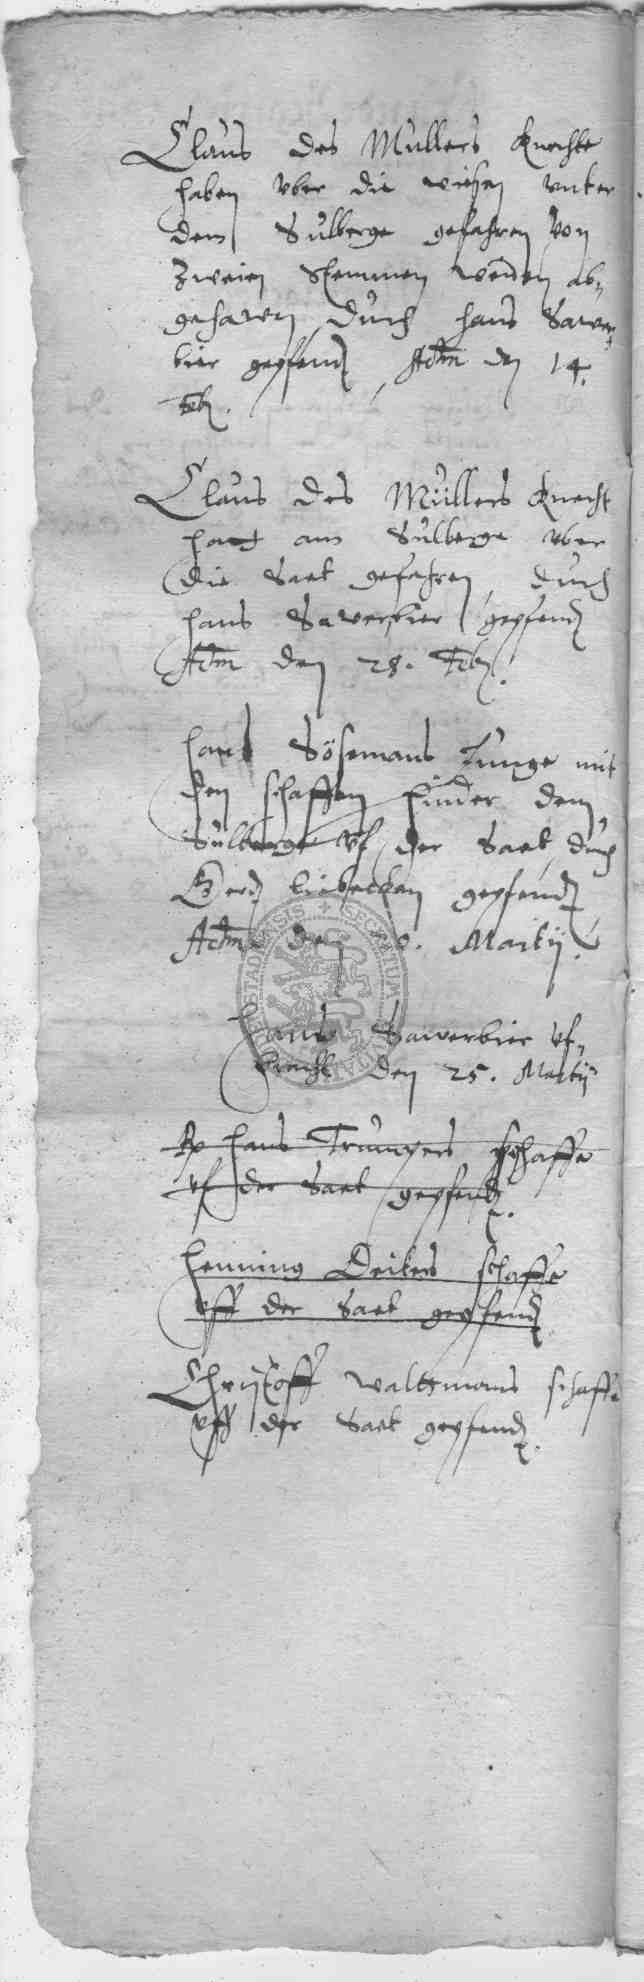 Claus des Mullers Knechte
haben vber die wiesen vnter
dem Sülberge gefahren von
zweien Stemmen weiden ab¬
gehawen durch hans Sawer¬
bier gepfend Actum den 14.
Feb.
Claus des Müllers Knecht
hatt am Sülberge vber
die Saet gefahren, durch
hans Sawerbier gepfend
Actum den 28. Feb.
hans Sösemans Junge mit
den schaffen hinder dem
Sülberge vf der Saet, durch
Gerd Lübecken gepfend
Actum den Martij.
Hans Sawerbier vf¬
bracht den 25. Martij
Rp hans Trumpers schaffe
vf der Saet gepfend.
Henning Deiters schaffe
vff der Saet gepfend
Christoff waltmans schaffe
vff der Saet gepfend.
SECRETUM